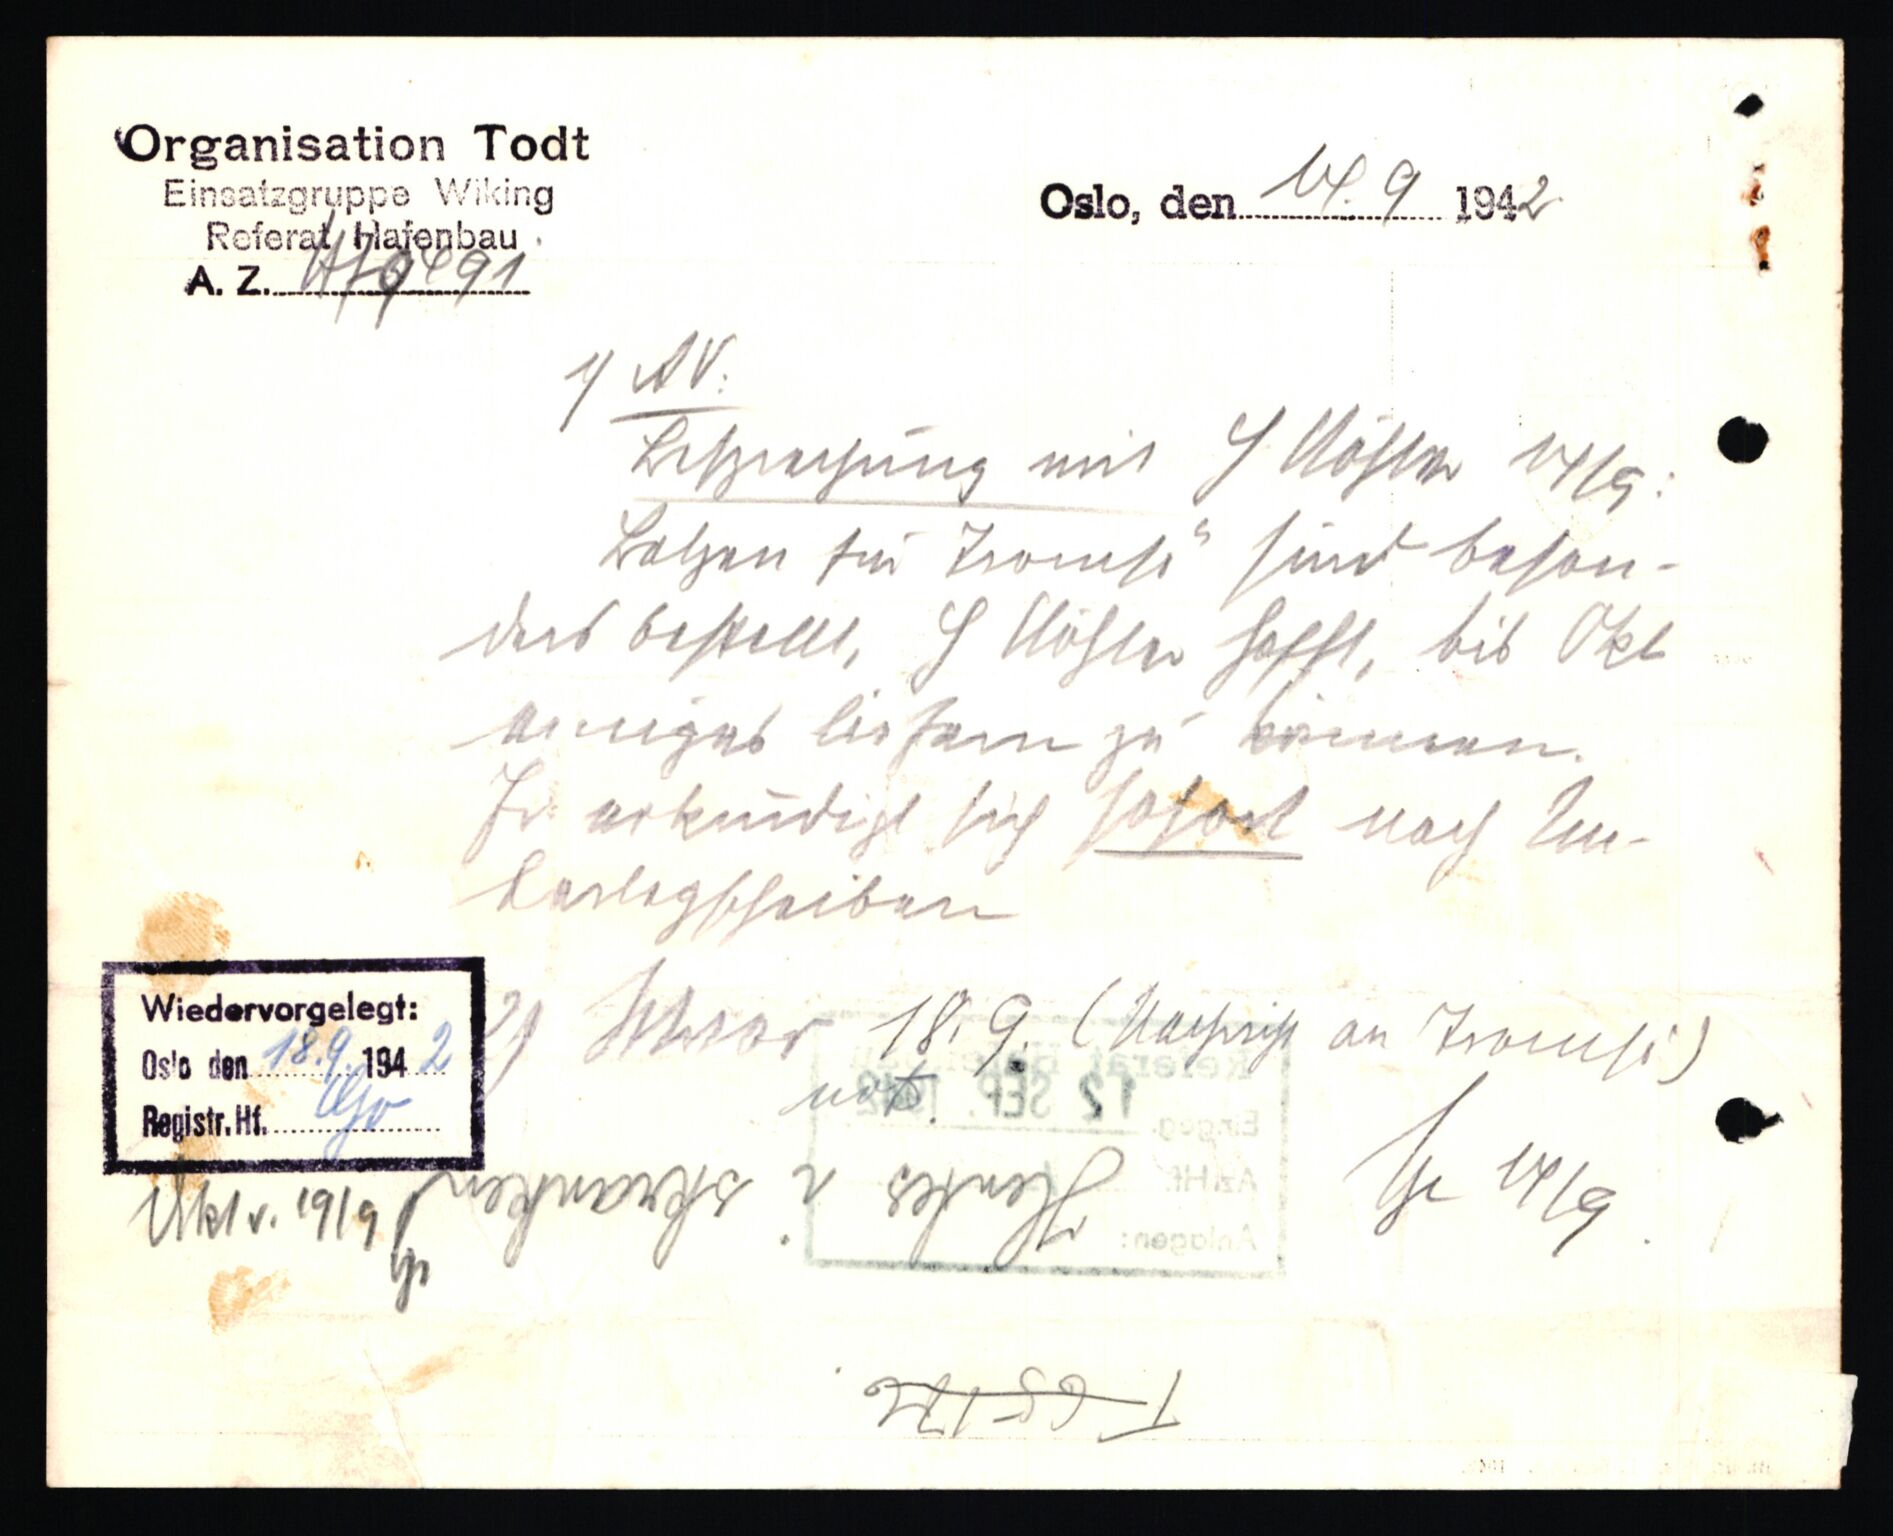 Organisation Todt
Einsatzgruppe Wiking
Referat Hafenbau
A. Z.
Oslo, den 14.9 1942
1) AV:
Besprechung mit H Köhler 14/9:
Bolzen für Tromsö sind beson-
ders bestellt, H Köhler hofft, bis Okt
einiges liefern zu können.
Fr. erkundigt sich sofort nach Un-
terlegscheiben
2) 18.9. (Nachricht an Tromsö)
14/9
Wiedervorgelegt:
Oslo den 18.9. 1942
Registr. Hf.
19/9
Referat Hafenbau
12 SEP. 1942
Eingeg.
Az: Hf.
Anlagen: